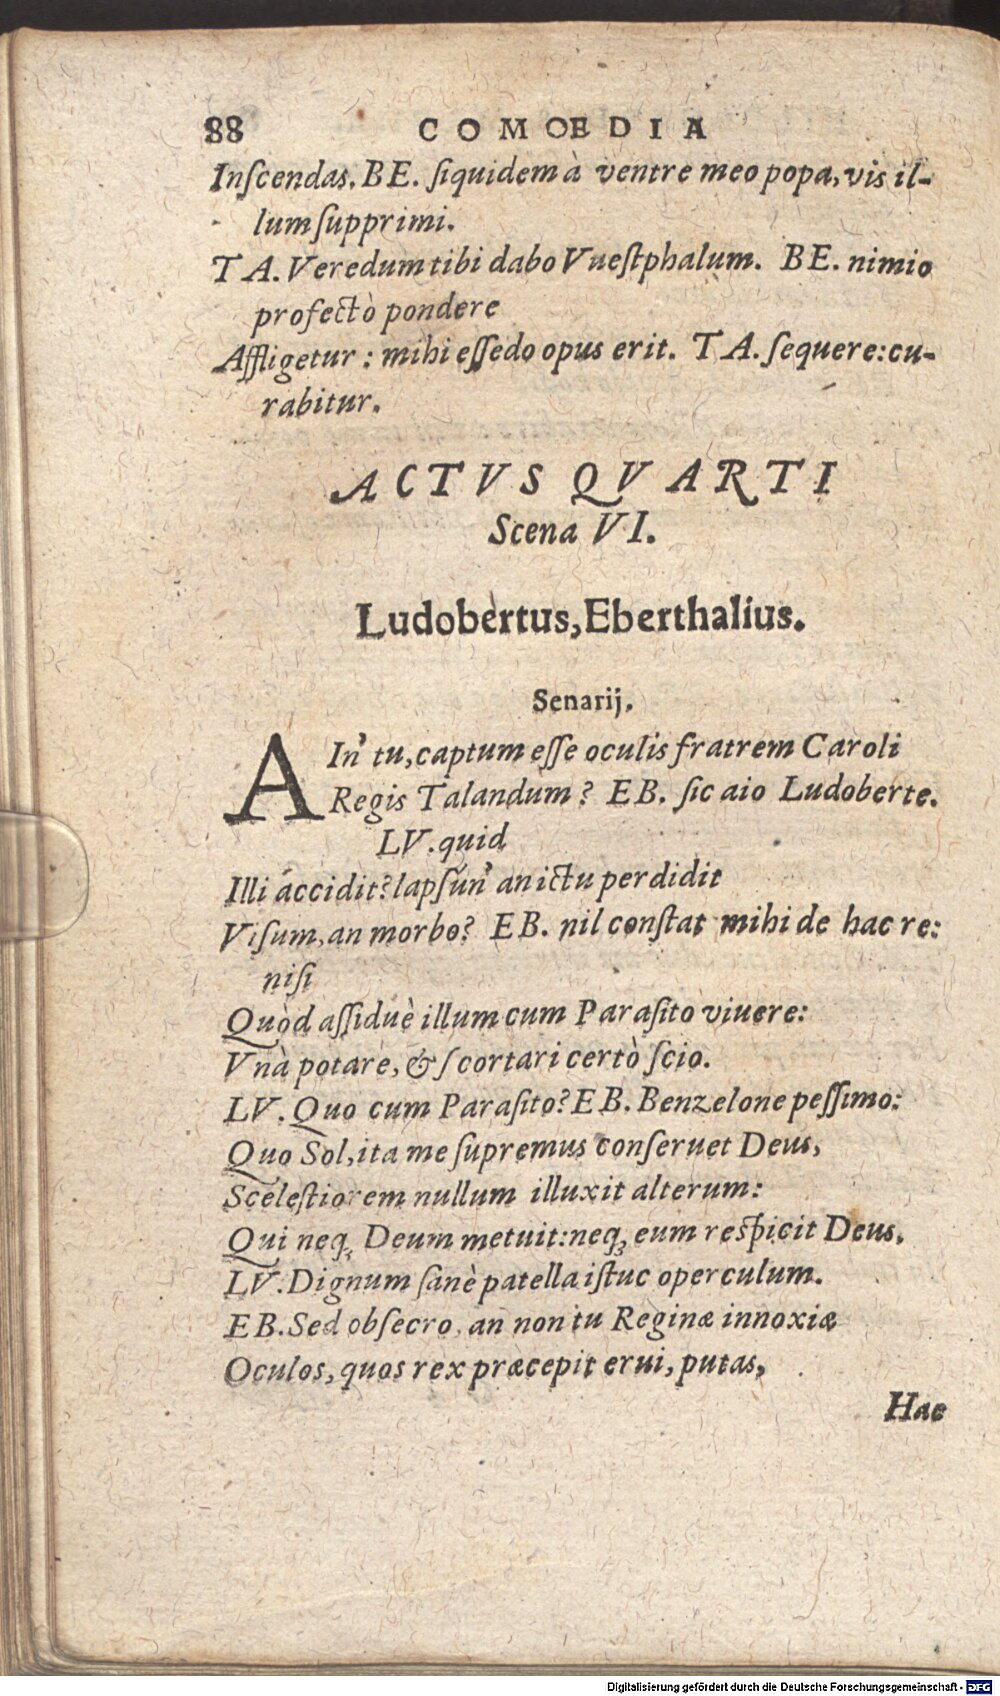 88 COMOEDIA
Inſcendas. BE. ſiquidem à ventre meo popa, vis il-
lum ſupprimi.
TA. Veredum tibi dabo Vueſtphalum. BE. nimio
profectò pondere
Affligetur : mihi eſſedo opus erit. TA. ſequere: cu-
rabitur.
ACTVS QVARTI
Scena VI.
Ludobertus, Eberthalius.
Senarij.
AIn' tu, captum eſſe oculis fratrem Caroli
Regis Talandum? EB. ſic aio Ludoberte.
LV. quid
Illi accidit? lapſun' an ictu perdidit
Viſum, an morbo? EB. nil conſtat mihi de hac re:
niſi
Quòd aſſiduè illum cum Paraſito viuere:
Vnà potare, & ſcortari certò ſcio.
LV. Quo cum Paraſito? EB. Benzelone peſſimo:
Quo Sol, ita me ſupremus conſeruet Deus,
Sceleſtiorem nullum illuxit alterum:
Qui neq; Deum metuit: neq; eum reſpicit Deus.
LV. Dignum ſanè patella iſtuc operculum.
EB. Sed obſecro, an non tu Reginæ innoxiæ
Oculos, quos rex præcepit erui, putas,
Hae
Digitalisierung gefördert durch die Deutsche Forschungsgemeinschaft - DFG